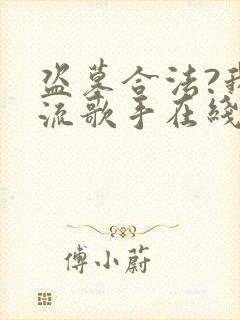 盗墓合法?我
流歌手在綫
傅小蔚